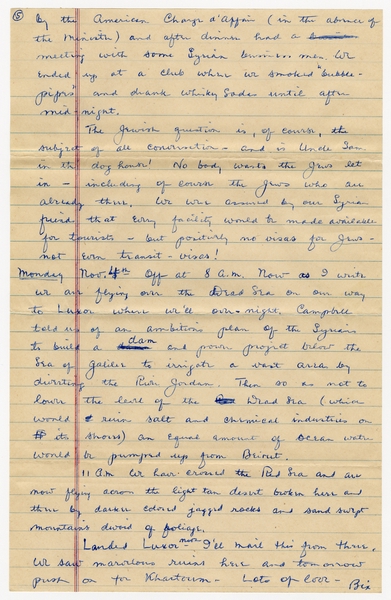 5
by the American Charge d'Affair (in the absence of
the Minister) and after dinner had a
meeting with some Syrian business men. We
ended up at a club where we smoked "bubble-
pipes" and drank whisky Sodas until after
mid-night.
The Jewish question is, of course, the
subject of all conversation - and is Uncle Sam
in the dog house! No body wants the Jews let
in - including of course the Jews who are
already there. We were assured by our Syrian
friend that every facility would be made available
for tourists - but positively no visas for Jews -
not even transit-visas!
Monday Nov. 4th Off at 8 A.M. Now as I write
we are flying over the Dead Sea on our way
to Luxor where we'll over-night. Campbell
told us of an ambitious plan of the Syrians
to build a dam and power project below the
Sea of Galilee to irrigate a vast area by
diverting the River Jordan. Then so as not to
lower the level of the Dead Sea (which
would ruin salt and chemical industries on
its shores) an equal amount of ocean water
would be pumped up from Beirut.
11 A.M. We have crossed the Red Sea and are
now flying across the light tan desert broken here and
there by darker colored jagged rocks and sand swept
mountains devoid of foliage.
Landed Luxor noon I'll mail this from there.
We saw marvelous ruins here and tomorrow
push on for Khartoum - Lots of love - Bix